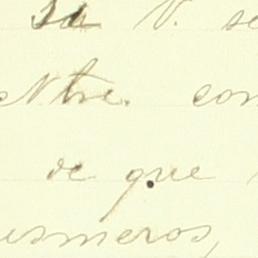 V. se
Ntre. con
de que
esmeros,